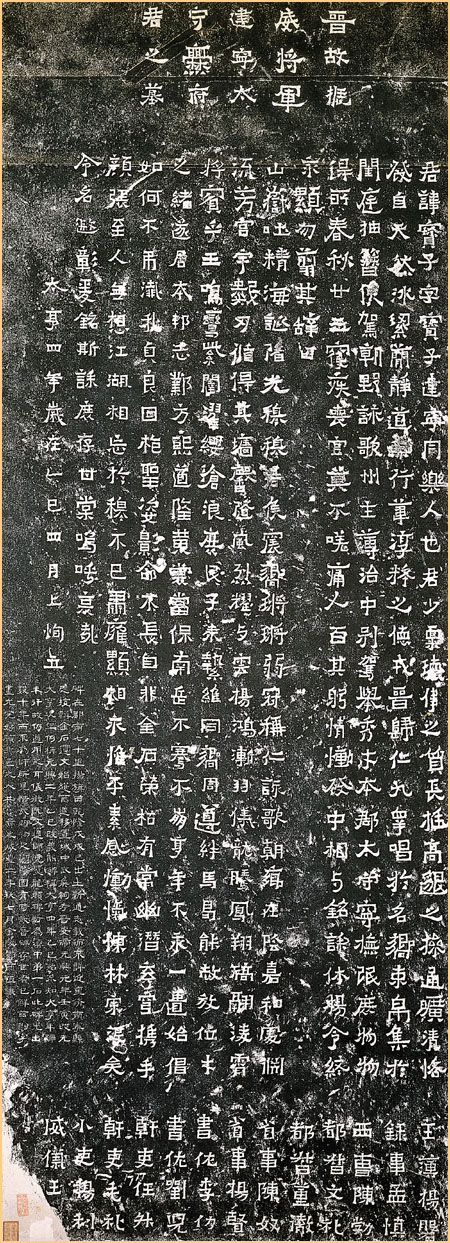 晉故振
威將軍
建寧太
守爨府
君之墓
君諱寶子字寶子建寧同樂人也君少稟瓌偉之質長挺高邈之操通曠清恪
發自天然冰絜簡靜道兼行葦淳粹之德戎晉歸仁九皋唱於名嚮束帛集於
閨庭抽簪俟駕朝野詠歌州主簿治中別駕舉秀才本郡太守寧撫氓庶物物
得所春秋廿五寢疾喪官莫不嗟痛人百其躬情慟發中相與銘誄休揚令終
永顯勿翦其辭曰
山嶽吐精海誕陼光穆穆君侯震嚮鏘鏘弱冠稱仁詠歌朝鄉在陰嘉和處淵
流芳宮宇數仞循得其墻馨隨風烈耀與雲揚鴻漸羽儀龍騰鳳翔矯翮凌霄
將賓乎王鳴鸞紫闥濯纓滄浪庶民子來縶維同嚮周遵絆馬曷能赦放位才
之緒遂居本邦志鄴方熙道隆黃裳當保南岳不騫不崩享年不永一匱始倡
如何不弔殲我貞良回枹聖姿影命不長自非金石榮枯有常幽潛玄穹攜手
顏張至人無想江湖相忘於穆不已肅雍顯相永惟平素感慟忾慷陳林宗沒矣
令名遐彰爰銘斯誄庶存甘棠嗚呼哀哉
太亨四年歲在乙巳四月上恂立
主簿楊磐
錄事孟慎
西曹陳勃
都督文礼
都督董徹
省事陳奴
省事楊賢
書佐李仂
書佐劉兒
幹吏任升
幹吏毛礼
小吏楊利
威儀王